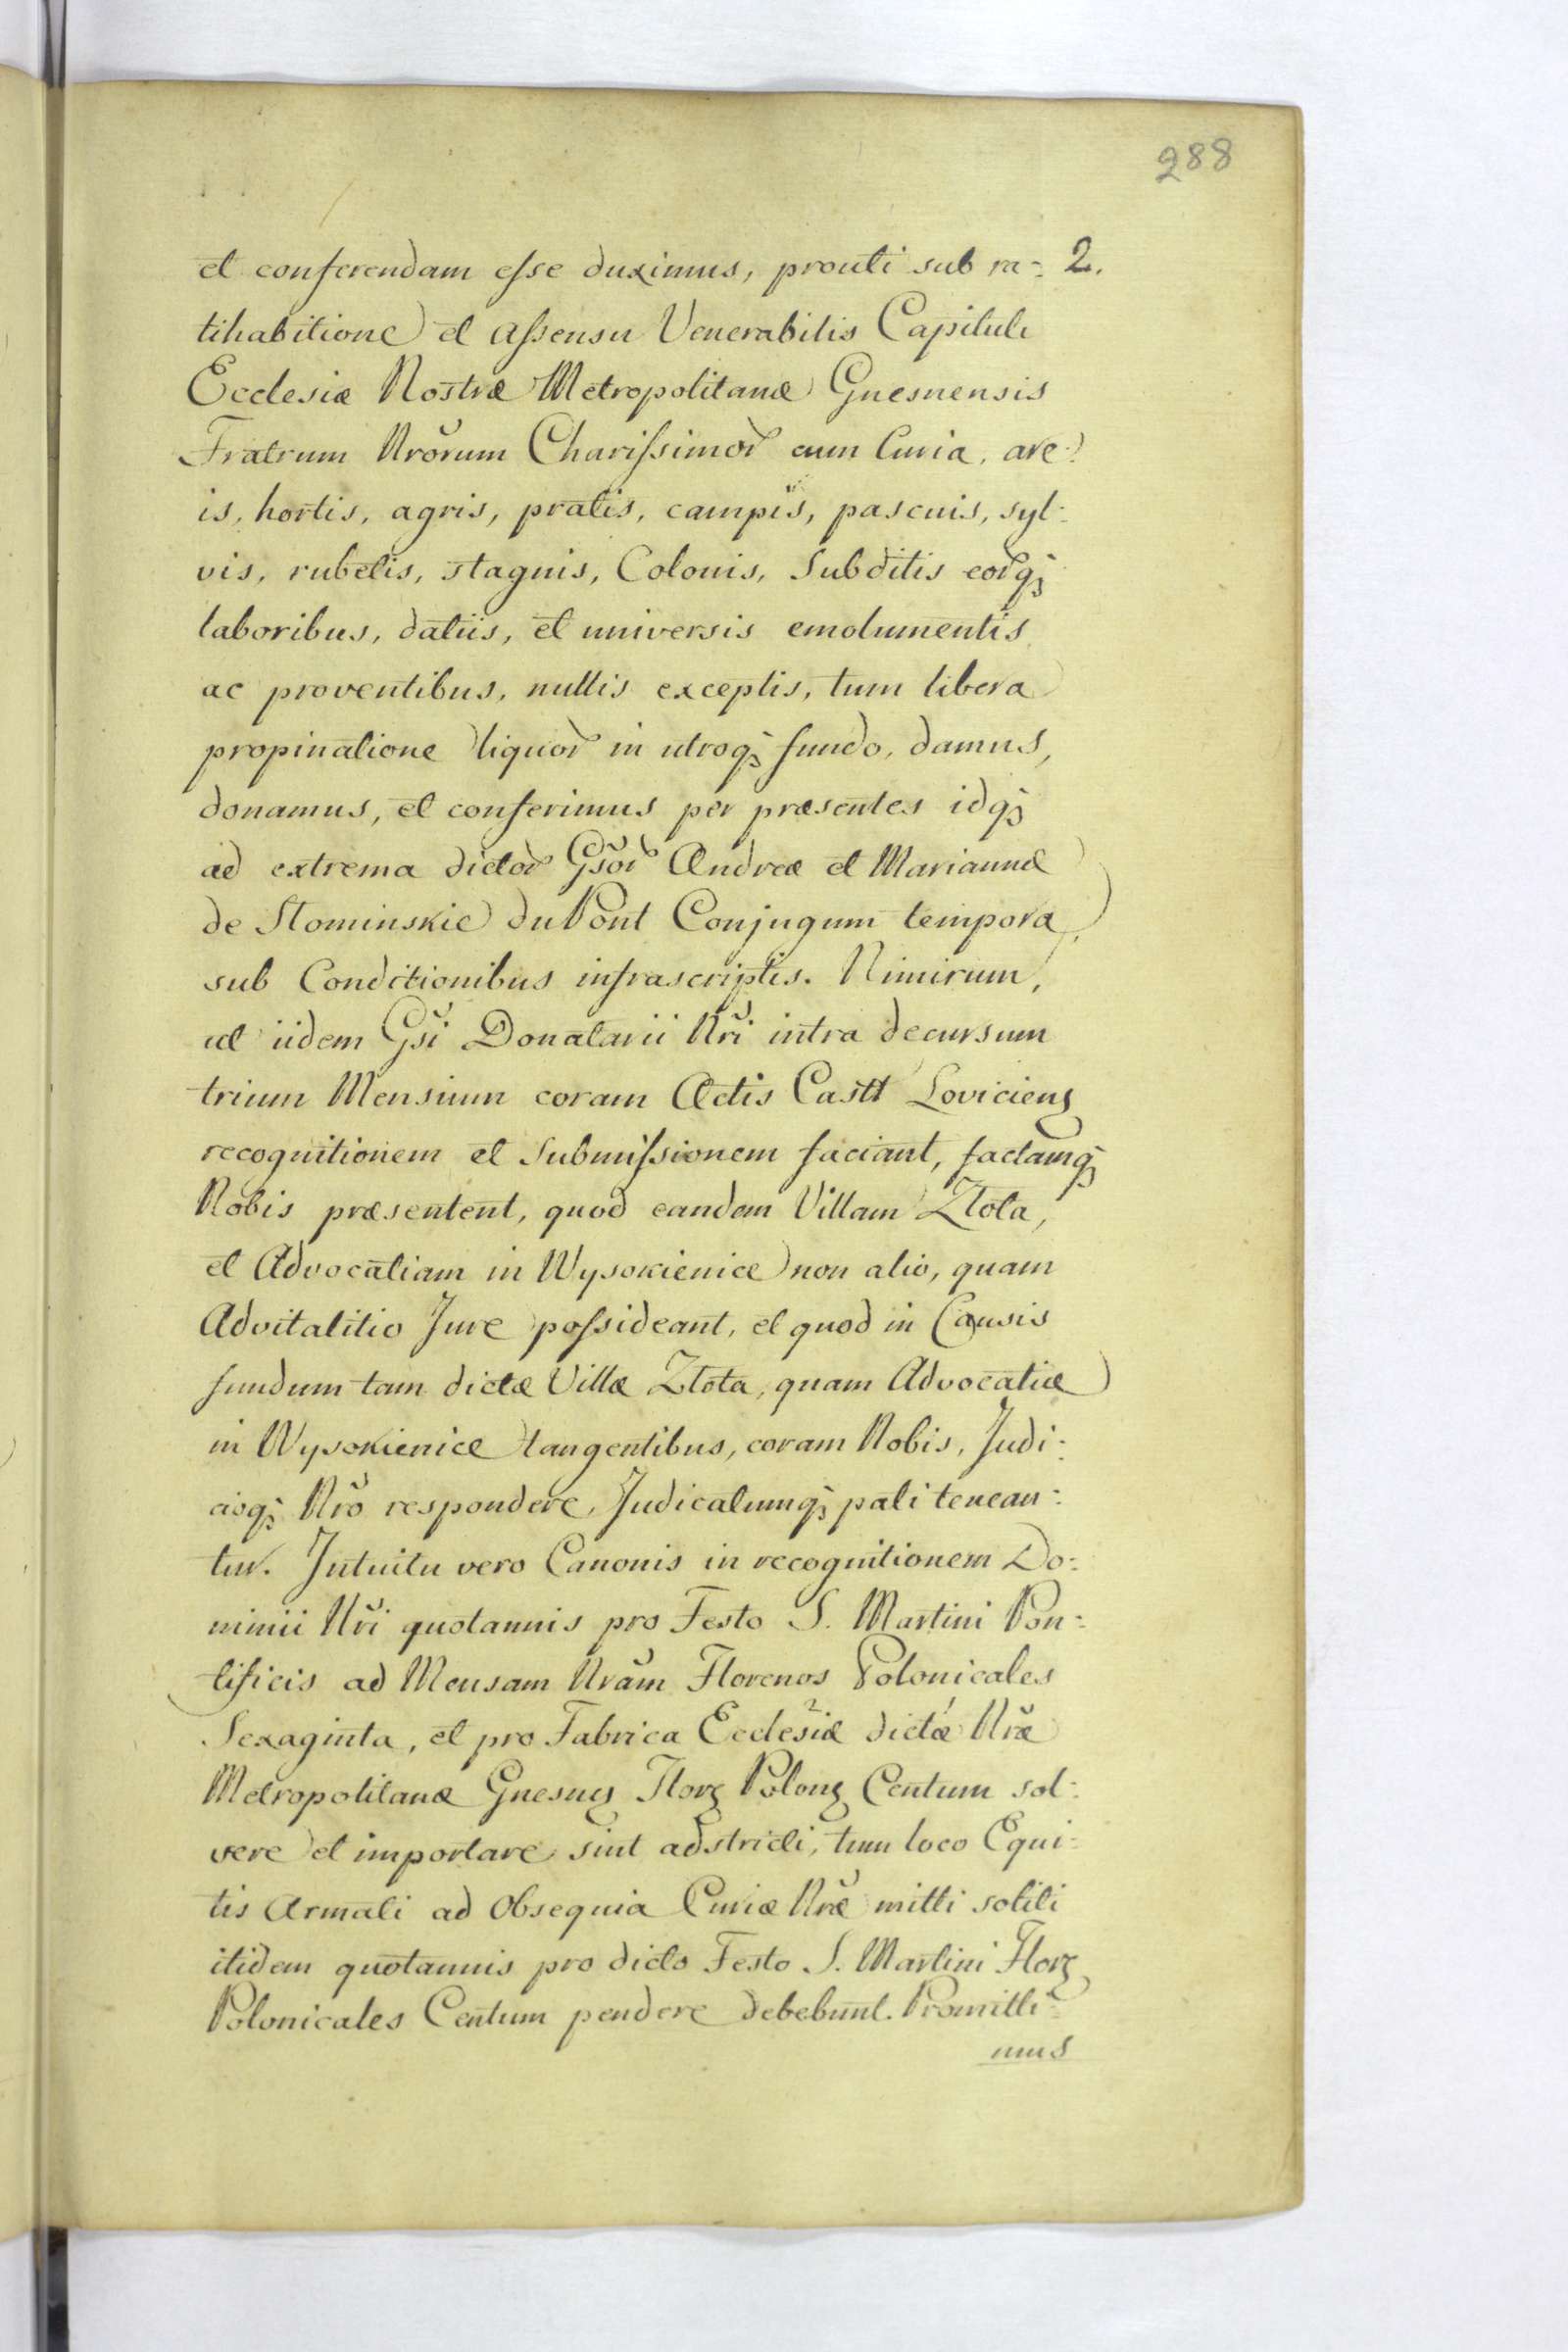 288
et conferendam esse duximus, prouti sub ra-: 2.
tihabitione et assensu Venerabilis Capituli
Ecclesiæ Nostræ Metropolitanæ Gnesnensis
Fratrum Nrorum Charissimor cum Curia, are-:
is, hortis, agris, pratis, campis, pascuis, syl-:
vis, rubetis, stagnis, Colonis, Subditis eorq;
laboribus, datiis, et universis emolumentis
ac proventibus, nullis exceptis, tum libera
propinatione liquor in utroq; fundo, damus,
donamus, et conferimus per præsentes idq;
ad extrema dictor Gsor Andreæ et Mariannæ
de Słominskie duPont Conjugum tempora,
sub Conditionibus infrascriptis. Nimirum,
ut iidem Gsi Donatarii Nri intra decursum
trium Mensium coram Actis Castt Loviciens
recognitionem et Submissionem faciant, factamq;
Nobis præsentent, quod eandem Villam Złota,
et Advocatiam in Wysokienice non alio, quam
Advitalitio Jure possideant, et quod in Causis
fundum tam dictæ Villæ Złota, quam Advocatiæ
in Wysokienice tangentibus, coram Nobis, Judi-:
cioq; Nro respondere, Judicatumq; pati tenean-:
tur. Intuitu vero Canonis in recognitionem Do-:
minii Nri quotannis pro Festo S. Martini Pon-:
tificis ad Mensam Nram Florenos Polonicales
Sexaginta, et pro Fabrica Ecclesiæ dictæ Nræ
Metropolitanæ Gnesnen Flor Polon Centum sol-:
vere et importare sint adstricti, tum loco Equi-:
tis Armati ad Obsequia Curiæ Nræ mitti soliti
itidem quotannis pro dicto Festo S. Martini Flor
Polonicales Centum pendere debebunt. Promitti-:
mus